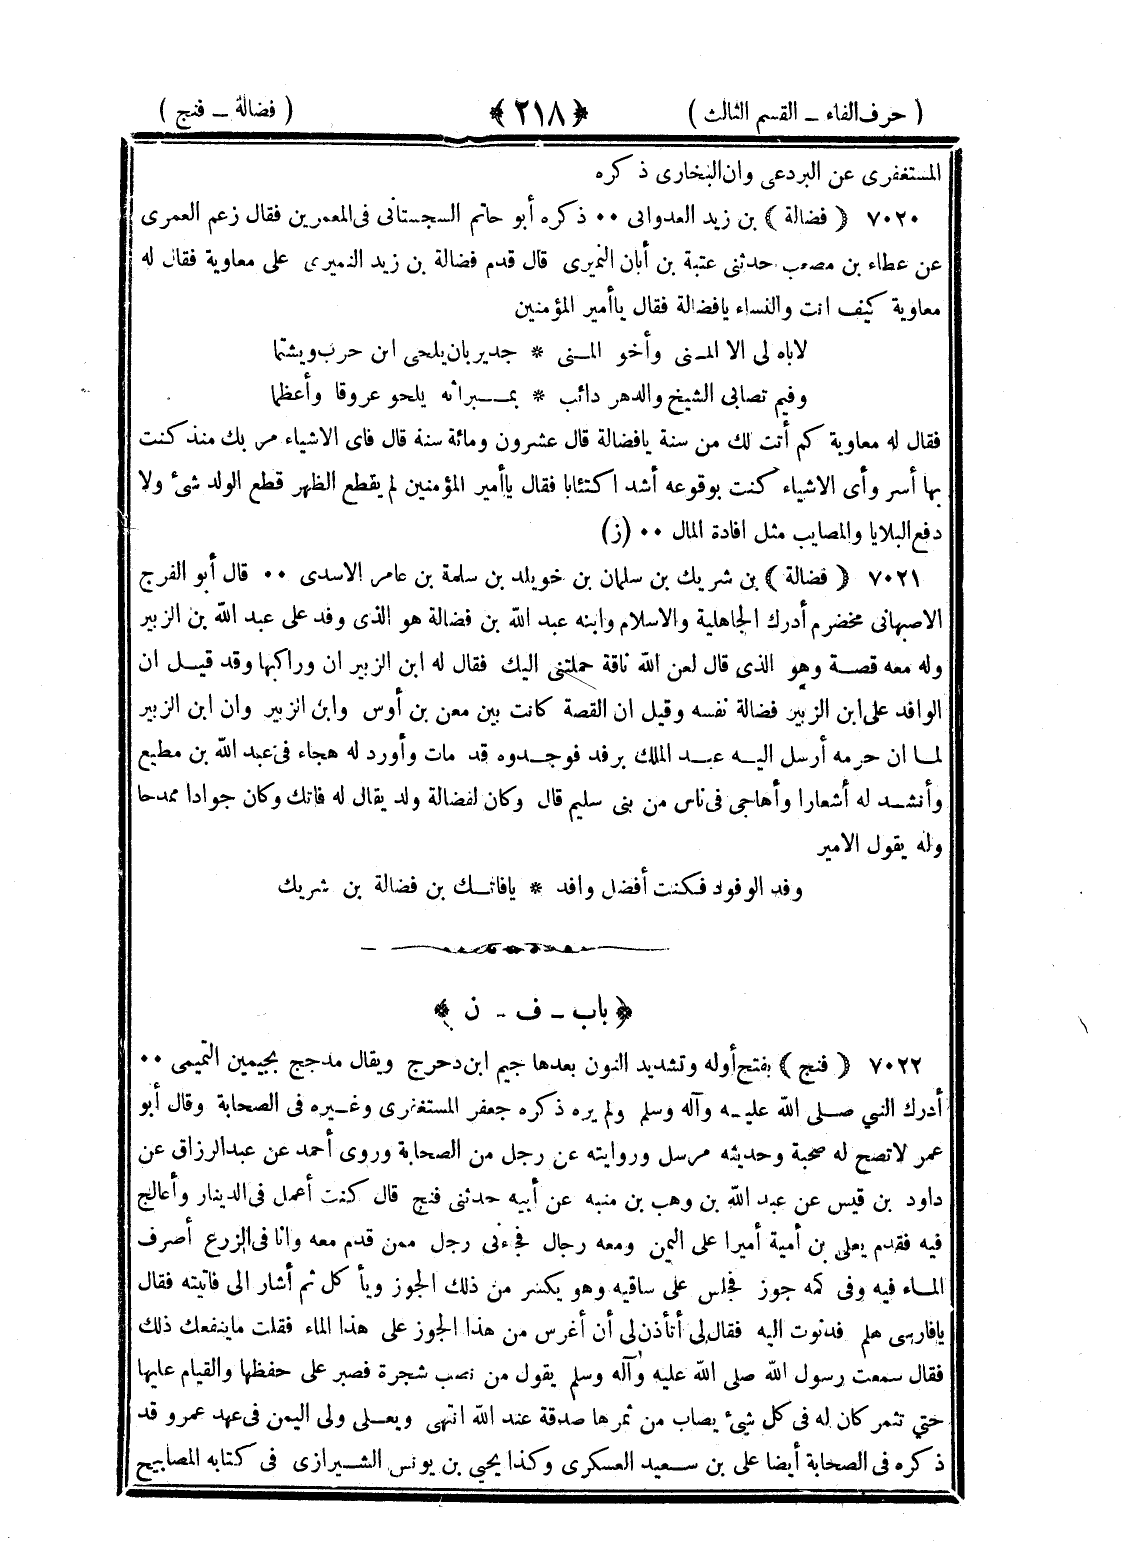 ( حرف الفاء ـ القسم الثالث ) ﴿ ٢١٨ ﴾ ( فضالة ـ فنج )
المستغفرى عن البردعى وان البخارى ذكره
٧٠٢٠ ﴿ فضالة ﴾ بن زيد العدوانى ٠٠ ذكره أبو حاتم السجستانى فى المعمرين فقال زعم العمرى
عن عطاء بن مصعب حدثنى عتبة بن أبان النميرى قال قدم فضالة بن زيد النميرى على معاوية فقال له
معاوية كيف انت والنساء يافضالة فقال ياأمير المؤمنين
لاباه لى الا المنى وأخو المنى * جدير بان يلحى ابن حرب ويشتما
وفيم تصابى الشيخ والدهر دائب * بمبراته يلحو عروقا وأعظما
فقال له معاوية كم أتت لك من سنة يافضالة قال عشرون ومائة سنة قال فاى الاشياء مر بك منذ كنت
بها أسر وأى الاشياء كنت بوقوعه أشد اكتئابا فقال ياأمير المؤمنين لم يقطع الظهر قطع الولد شئ ولا
دفع البلايا والمصايب مثل افادة المال ٠٠ (ز)
٧٠٢١ ﴿ فضالة ﴾ بن شريك بن سلمان بن خويلد بن سلمة بن عامر الاسدى ٠٠ قال أبو الفرج
الاصبهانى مخضرم أدرك الجاهلية والاسلام وابنه عبد الله بن فضالة هو الذى وفد على عبد الله بن الزبير
وله معه قصة وهو الذى قال لعن الله ناقة حملتنى اليك فقال له ابن الزبير ان وراكبها وقد قيل ان
الوافد على ابن الزبير فضالة نفسه وقيل ان القصة كانت بين معن بن أوس وابن الزبير وان ابن الزبير
لما ان حرمه أرسل اليه عبد الملك برفد فوجدوه قد مات وأورد له هجاء فى عبد الله بن مطيع
وأنشد له أشعارا وأهاجى فى ناس من بنى سليم قال وكان لفضالة ولد يقال له فاتك وكان جوادا ممدحا
وله يقول الامير
وفد الوفود فكنت أفضل وافد * يافاتك بن فضالة بن شريك
﴿ باب ـ ف ـ ن ﴾
٧٠٢٢ ﴿ فنج ﴾ بفتح أوله وتشديد النون بعدها جيم ابن دحرج ويقال مدجج بجيمين التميمى ٠٠
أدرك النبي صلى الله عليه وآله وسلم ولم يره ذكره جعفر المستغفرى وغيره فى الصحابة وقال أبو
عمر لاتصح له صحبة وحديثه مرسل وروايته عن رجل من الصحابة وروى أحمد عن عبدالرزاق عن
داود بن قيس عن عبد الله بن وهب بن منبه عن أبيه حدثنى فنج قال كنت أعمل فى الدينار وأعالج
فيه فقدم يعلى بن أمية أميرا على اليمن ومعه رجال فجاءنى رجل ممن قدم معه وانا فى الزرع أصرف
الماء فيه وفى كمه جوز فجلس على ساقيه وهو يكسر من ذلك الجوز ويأكل ثم أشار الى فاتيته فقال
يافارسى هلم فدنوت اليه فقال لى أتأذن لى أن أغرس من هذا الجوز على هذا الماء فقلت ماينفعك ذلك
فقال سمعت رسول الله صلى الله عليه وآله وسلم يقول من نصب شجرة فصبر على حفظها والقيام عليها
حتي تثمر كان له فى كل شيئ يصاب من ثمرها صدقة عند الله انتهى ويعلى ولى اليمن فى عهد عمرو قد
ذكره فى الصحابة أيضا على بن سعيد العسكرى وكذا يحيي بن يونس الشيرازى فى كتابه المصابيح